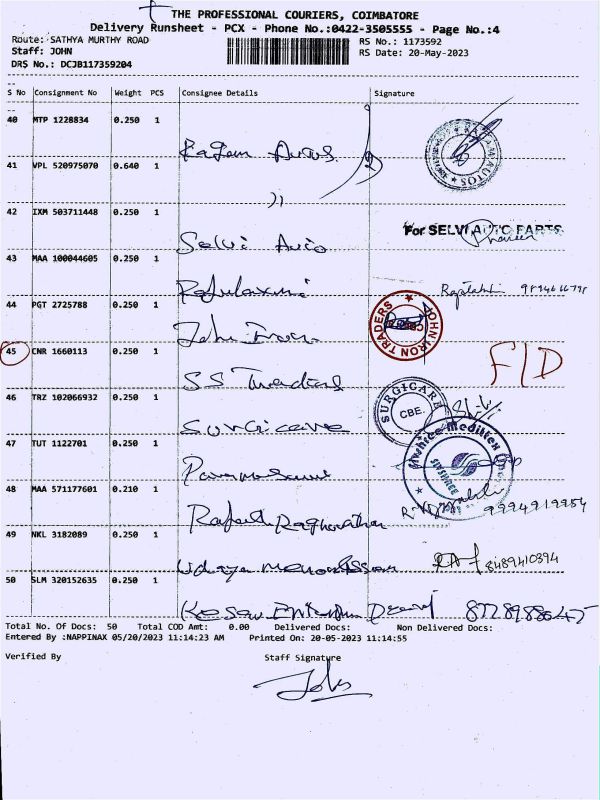 THE PROFESSIONAL COURIERS, COIMBATORE
Delivery Runsheet - PCX - Phone No.:0422-3505555 - Page No.:4
Route: SATHYA MURTHY ROAD
RS No.: 1173592
Staff: JOHN
RS Date: 20-May-2023
DRS No.: DCJB117359204
S No Consignment No Weight PCS Consignee Details Signature
40 MTP 1228834 0.250 1
Autos
41 VPL 520975070 0.640 1
42 IXM 503711448 0.250 1
For SELVI AUTO PARTS
Selvi Auto
43 MAA 100044605 0.250 1
Rajalaxmi
44 PGT 2725788 0.250 1
JOHN IRON TRADERS
John Iron
45 CNR 1660113 0.250 1
F/D
SS Trading
46 TRZ 102066932 0.250 1
SURGICARE
CBE.
Surgicare
47 TUT 1122701 0.250 1
Sivshree Meditex
SIVSHREE
48 MAA 571177601 0.210 1
9994919954
Rajesh Raghunathan
49 NKL 3182089 0.250 1
8489410394
Udaya
50 SLM 320152635 0.250 1
Total No. Of Docs: 50 Total COD Amt: 0.00 Delivered Docs: Non Delivered Docs:
Entered By :NAPPINAX 05/20/2023 11:14:23 AM Printed On: 20-05-2023 11:14:55
Verified By Staff Signature
John